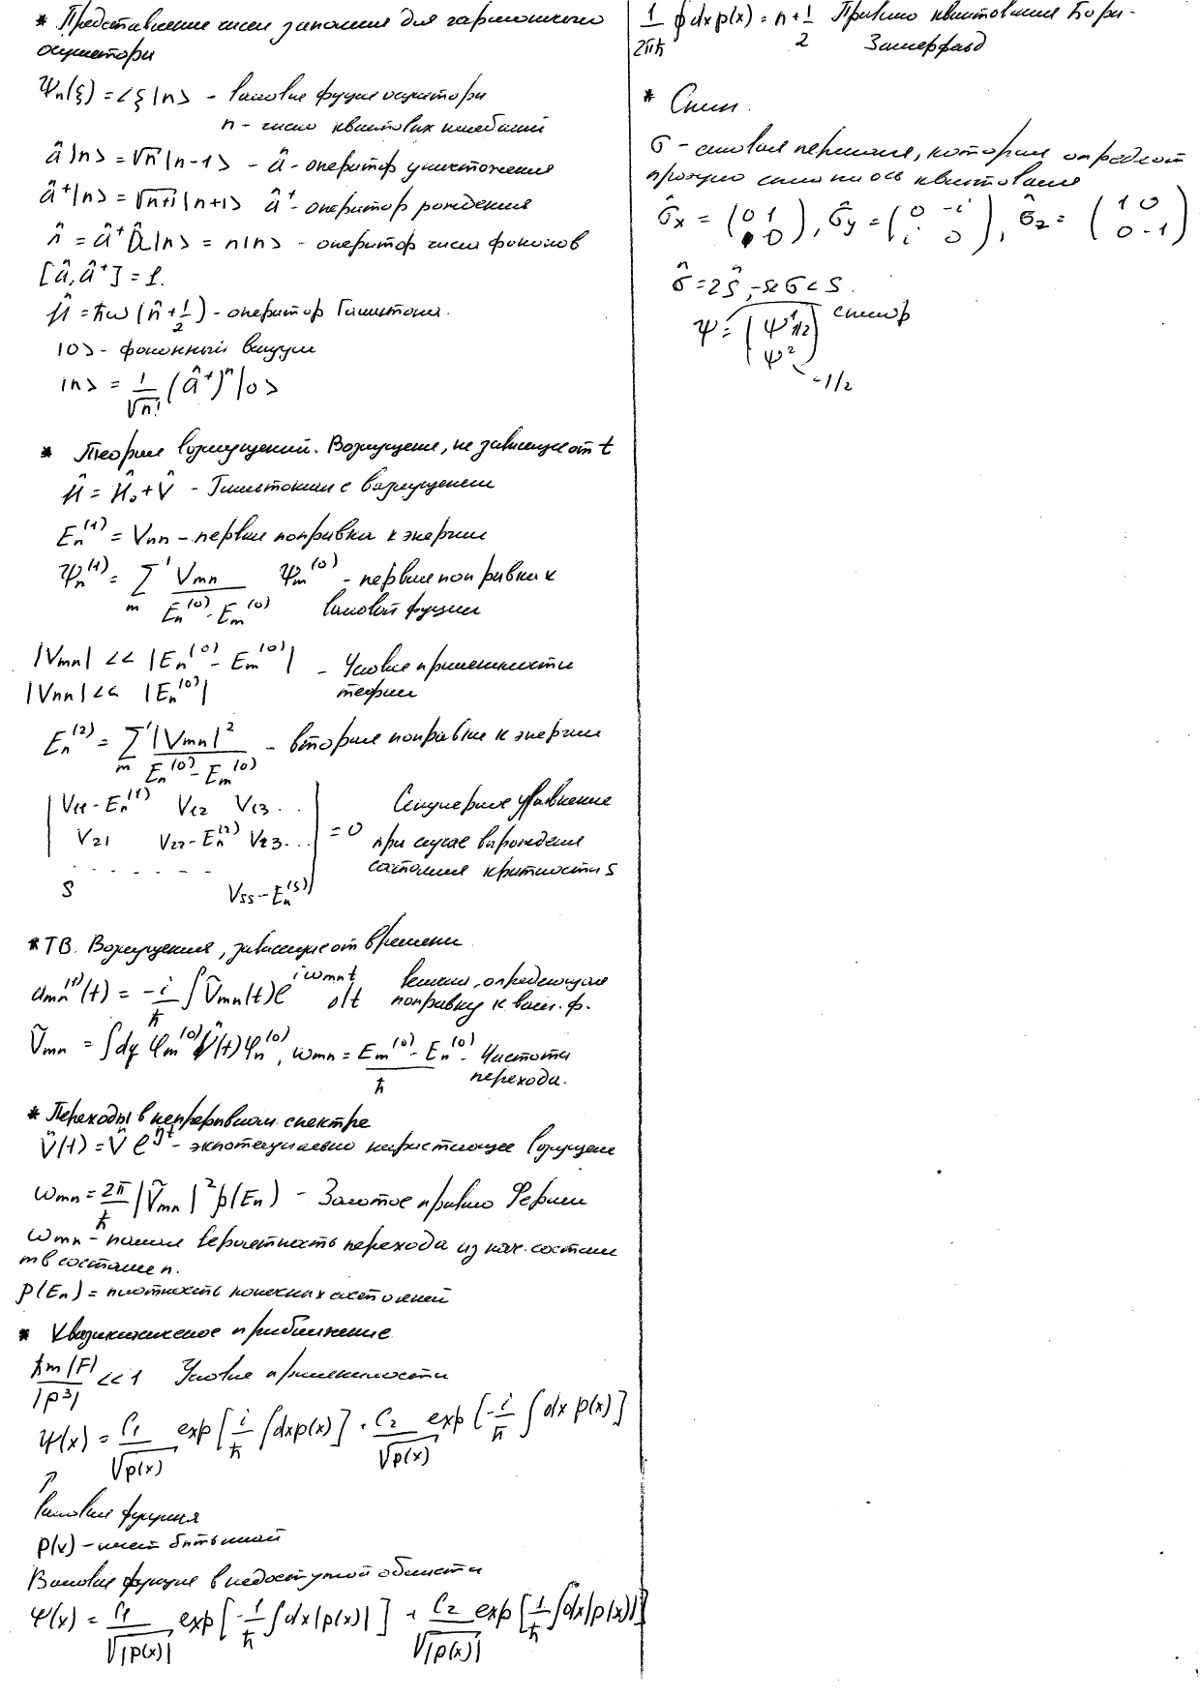 * Представление чисел заполнения для гармонического
осциллятора
Ψn(ξ) = <ξ|n> - волновые функции осциллятора
n - число квантовых колебаний
â|n> = √n |n-1> - â - оператор уничтожения
â⁺|n> = √n+1 |n+1> â⁺ - оператор рождения
n̂ = â⁺â|n> = n|n> - оператор числа фононов
[â, â⁺] = 1.
Ĥ = ħω(n̂ + 1/2) - оператор Гамильтона.
|0> - фононный вакуум
|n> = 1/√n! (â⁺)ⁿ|0>
* Теория возмущений. Возмущение, не зависящие от t
Ĥ = Ĥ₀ + V̂ - Гамильтониан с возмущением
En⁽¹⁾ = Vnn - первая поправка к энергии
Ψn⁽¹⁾ = Σ'm Vmn / (En⁽⁰⁾ - Em⁽⁰⁾) Ψm⁽⁰⁾ - первая поправка к
волновой функции
|Vmn| << |En⁽⁰⁾ - Em⁽⁰⁾| - Условие применимости
|Vnn| << |En⁽⁰⁾| теории
En⁽²⁾ = Σ'm |Vmn|² / (En⁽⁰⁾ - Em⁽⁰⁾) - вторая поправка к энергии
| V11 - En⁽¹⁾ V12 V13 ... | Секулярное уравнение
| V21 V22 - En⁽²⁾ V23 ... | = 0 при случае вырождения
. . . . . . . состояния кратности s
S Vss - En⁽ˢ⁾ |
* ТВ. Возмущения, зависящие от времени
amn⁽¹⁾(t) = -i/ħ ∫ Ṽmn(t) e^{iωmnt} dt величина, определяющая
поправку к волн. ф.
Ṽmn = ∫dq φm⁽⁰⁾ V̂(t) φn⁽⁰⁾, ωmn = (Em⁽⁰⁾ - En⁽⁰⁾)/ħ - Частота
перехода.
* Переходы в непрерывном спектре
V̂(t) = V̂ e^{ηt} - экспотенциально нарастающее возмущение
ωmn = 2π/ħ |Ṽmn|² ρ(En) - Золотое правило Ферми
ωmn - полная вероятность перехода из нач. состояния
m в состояние n.
ρ(En) = плотность конечных состояний
* Квазиклассическое приближение
ħm|F| / |p³| << 1 Условие применимости
Ψ(x) = C₁/√p(x) exp[i/ħ ∫dx p(x)] + C₂/√p(x) exp[-i/ħ ∫dx p(x)]
↗
волновая функция
p(x) -
Волновая функция в недоступной области
Ψ(x) = C₁/√|p(x)| exp[-1/ħ ∫dx|p(x)|] + C₂/√|p(x)| exp[1/ħ ∫dx|p(x)|]
1/2πħ ∮dx p(x) = n + 1/2 Правило квантования Бора-
Зоммерфельд
* Спин.
σ - спиновая переменная, которая определяет
проекцию спина на ось квантования
σ̂x = (0 1; 1 0), σ̂y = (0 -i; i 0), σ̂z = (1 0; 0 -1)
σ̂ = 2ŝ, -s ≤ σ ≤ s.
Ψ = (Ψ¹; Ψ²) спинор
1/2
-1/2